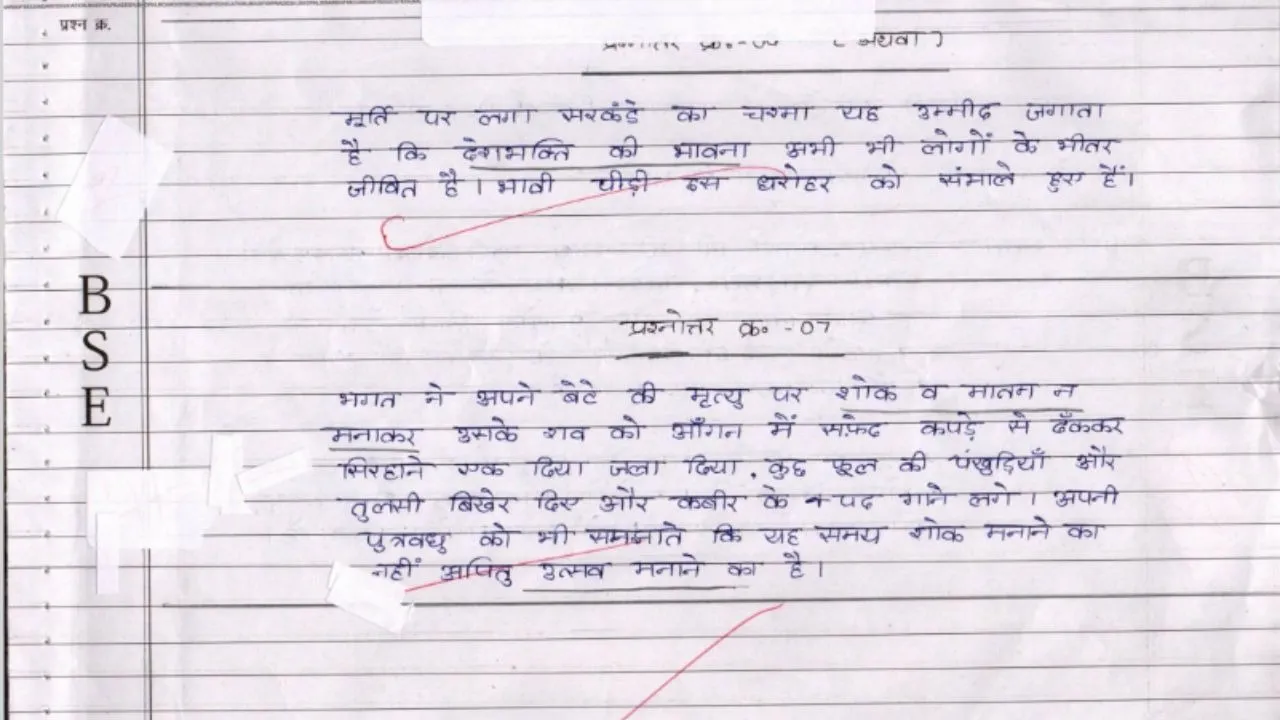 प्रश्न क्र.
( अथवा )
मूर्ति पर लगा सरकंडे का चश्मा यह उम्मीद जगाता
है कि देशभक्ति की भावना अभी भी लोगों के भीतर
जीवित है। भावी पीढ़ी इस धरोहर को संभाले हुए हैं।
B
S
E
प्रश्नोत्तर क्र॰ -07
भगत ने अपने बेटे की मृत्यु पर शोक व मातम न
मनाकर उसके शव को आँगन में सफ़ेद कपड़े से ढँककर
सिरहाने एक दिया जला दिया, कुछ फूल की पंखुड़ियाँ और
तुलसी बिखेर दिए और कबीर के पद गाने लगे। अपनी
पुत्रवधु को भी समझाते कि यह समय शोक मनाने का
नहीं अपितु उत्सव मनाने का है।